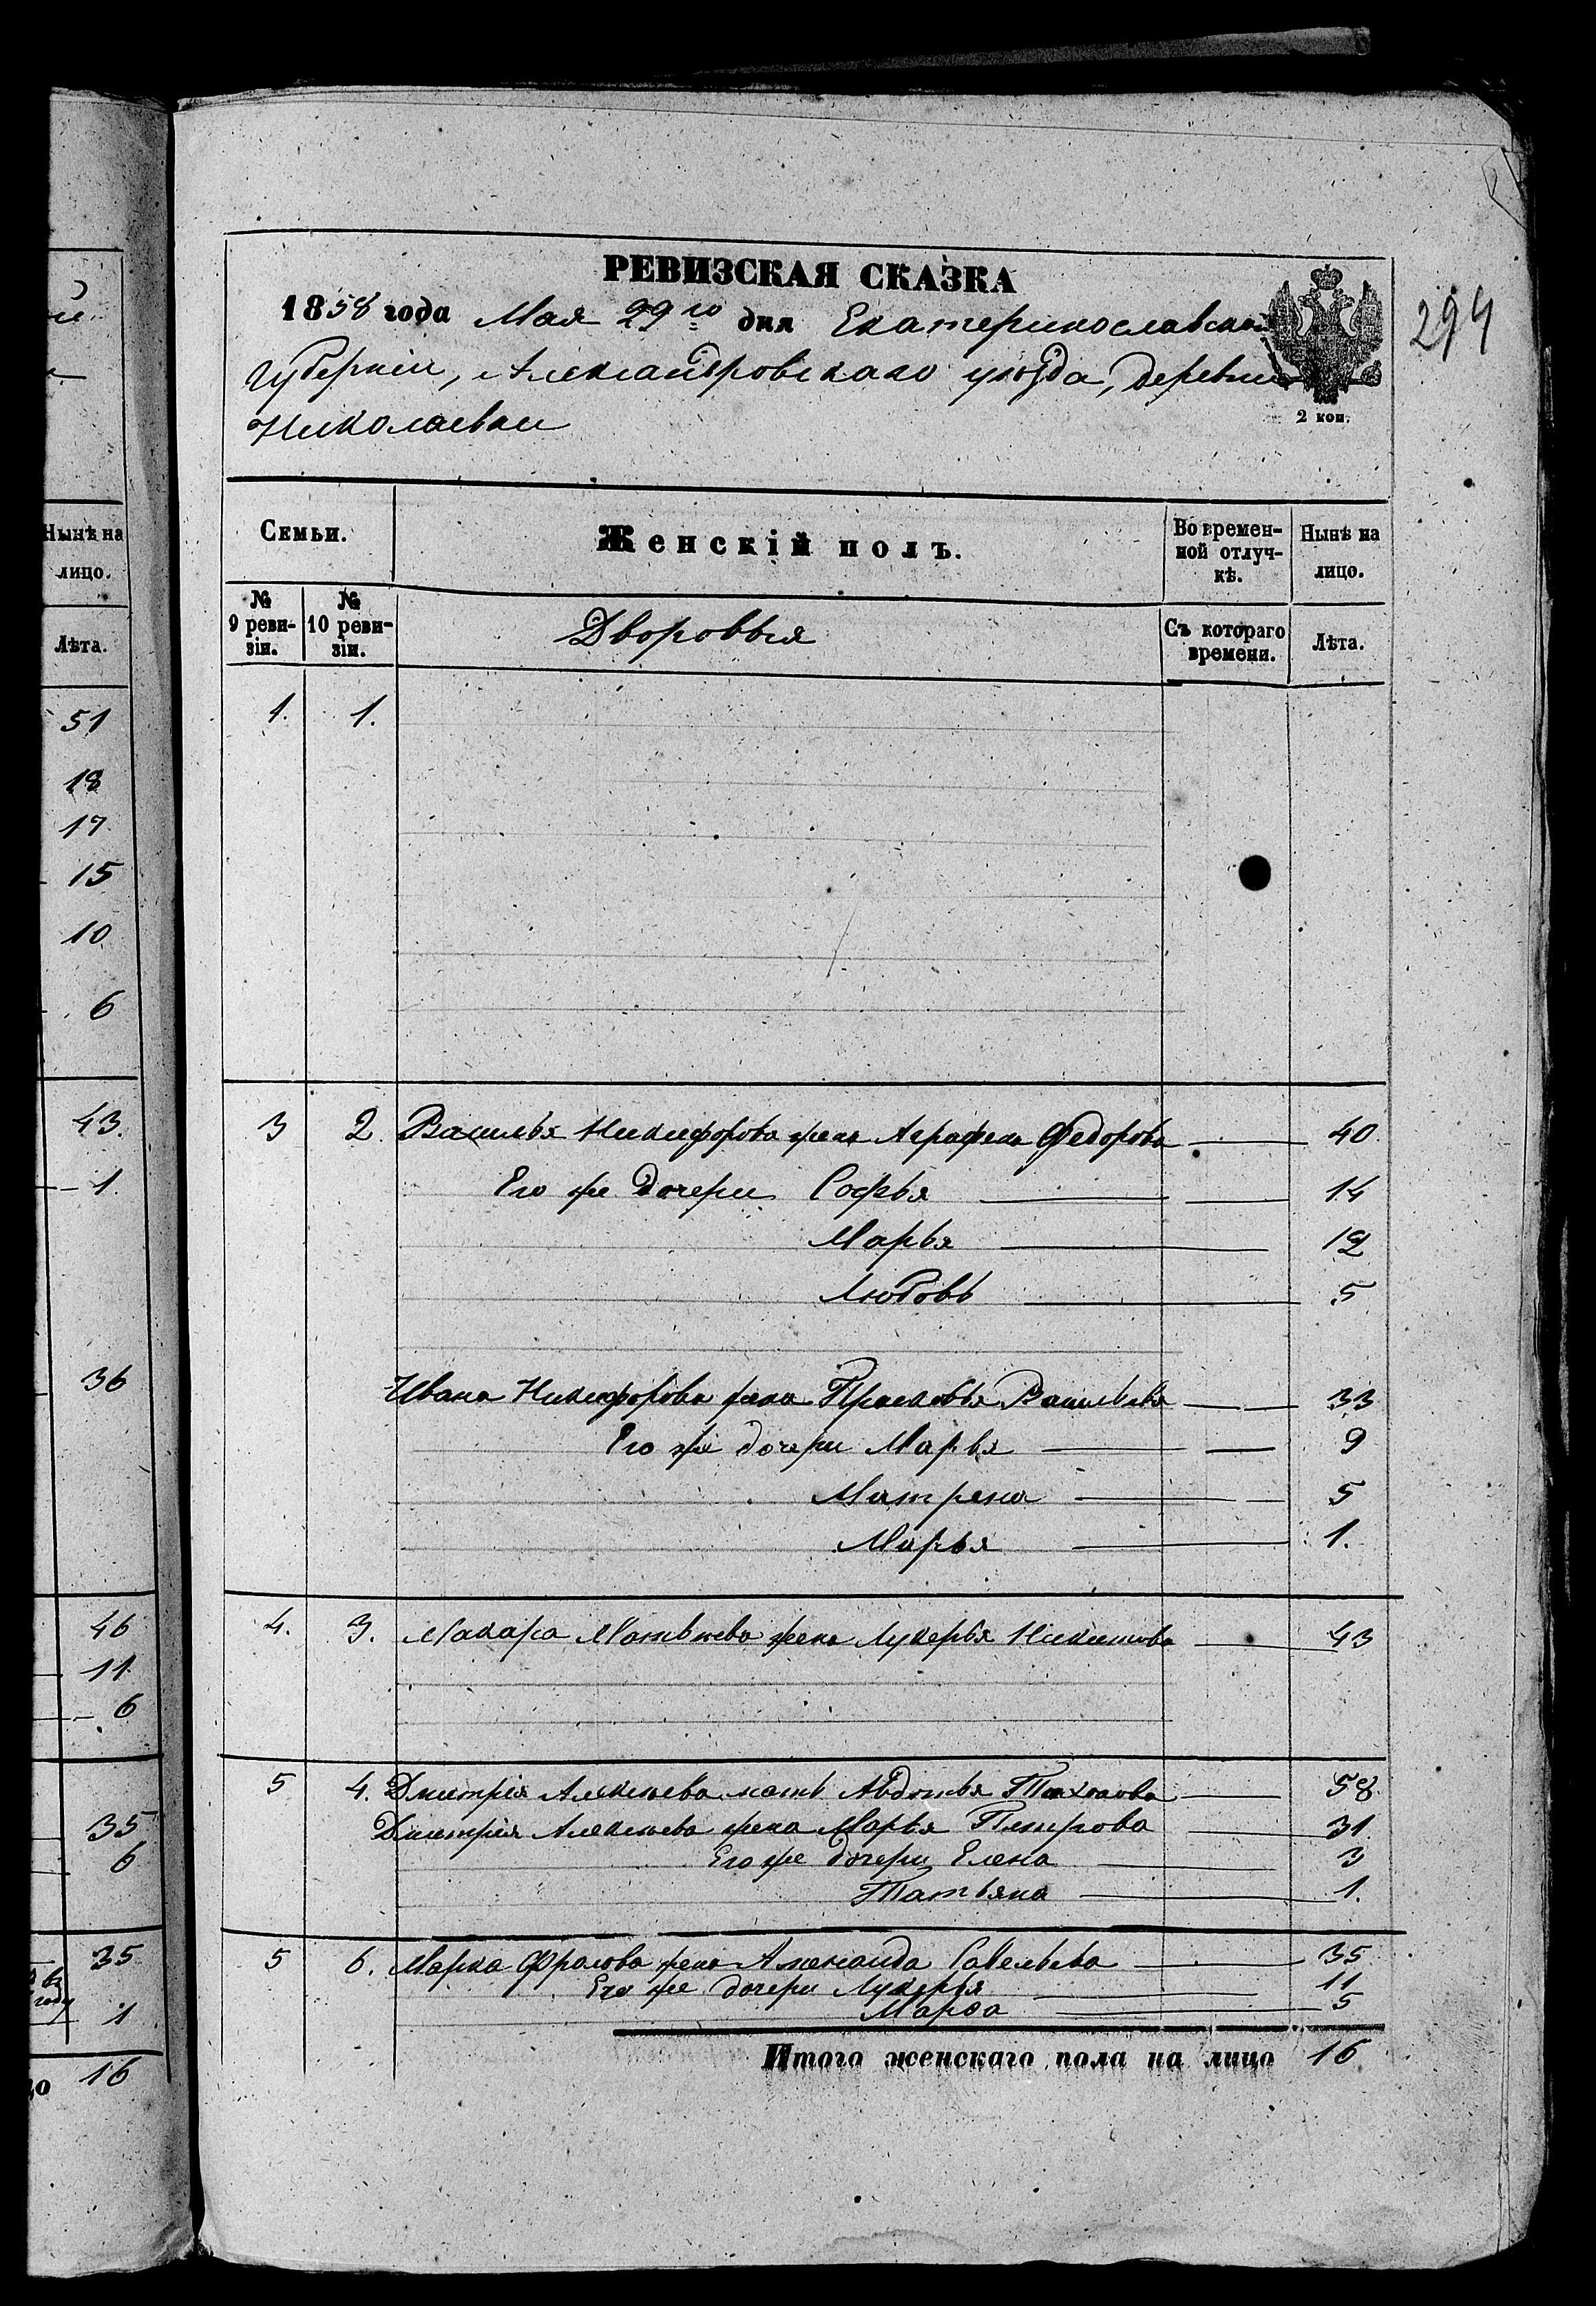 РЕВИЗСКАЯ СКАЗКА
1858 года Мая 29го дня Екатеринославской
губерніи, Александровскаго уѣзда, деревни
Николаевки
2 коп.
294
Семьи.
Женскій полъ.
Во времен-
ной отлуч-
кѣ.
Нынѣ на
лицо.
№
9 реви-
зіи.
№
10 реви-
зіи.
Дворовыя
Съ котораго
времени.
Лѣта.
1. 1.
3 2. Василья Никифорова жена Аграфена Федорова 40.
Его же дочери Софья 14
Марья 12
Любовь 5
Ивана Никифорова жена Прасковья Васильева 33
Его же дочери Марья 9
Матрена 5
Марья 1.
4. 3. Макара Матвѣева жена Лукерья Никитова 43
5 4. Дмитрія Алексѣева мать Авдотья 58
Дмитрія Алексѣева жена Марья Петрова 31
Его же дочери Елена 3
Татьяна 1.
5 6. Марка Фролова жена Савельева 35
Его же дочери Лукерья 11
Марѳа 5
Итого женскаго пола на лицо 16
Нынѣ на
лицо.
Лѣта.
51
18
17
15
10
6
43.
1.
36
46
11.
6
35
6
35
году
1
16